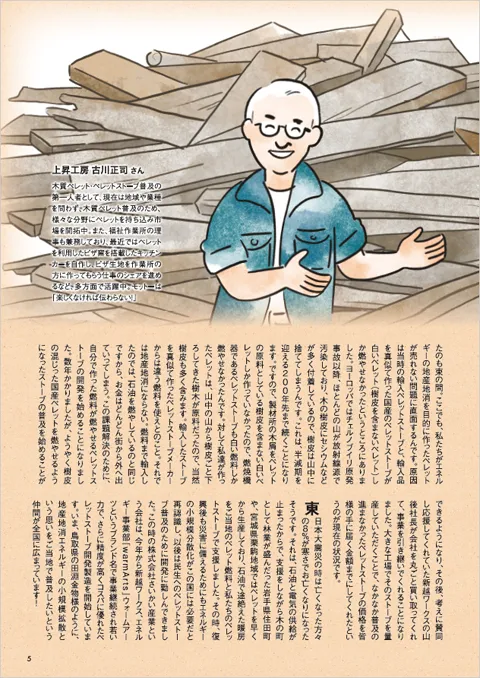 上昇工房 古川正司 さん
木質ペレット・ペレットストーブ普及の
第一人者として、現在は地域や業種
を問わず、木質ペレット普及のため、
様々な分野にペレットを持ち込み市
場を開拓中。また、福祉作業所の理
事も兼務しており、最近ではペレット
を利用したピザ窯を搭載したキッチン
カーを自作し、ピザ生地を作業所の
方に作ってもらう仕事のシェアを進め
るなど、多方面で活躍中。モットーは
「楽しくなければ伝わらない!」
たのも束の間。ここでも、私たちがエネル
ギーの地産地消を目的に作ったペレット
が売れない問題に直面するんです。原因
は当時の輸入ペレットストーブと、輸入品
を真似て作った国産のペレットストーブが
白いペレット(樹皮を含まないペレット)し
か燃やせなかったというところにありま
した。ヨーロッパではチェルノブイリ原発
事故以降、ほとんどの山が放射線で
汚染しており、木の樹皮にセシウムなど
が多く付着しているので、樹皮は山中に
捨ててしまうんです。これは、半減期を
迎える2000年先まで続くことになり
ます。ですので、製材所の木屑をペレット
の原料としている樹皮を含まない白いペ
レットしか作っていなかったので、燃焼機
器であるペレットストーブも白い燃料しか
燃やせなかったんです。対して私達が作っ
たペレットは、山中の山から樹皮ごと下
ろしてきた樹木が原料だったので、当然
樹皮も多く含みます。輸入されたストーブ
を真似て作ったペレットストーブメーカー
からは違う燃料を使えとのこと。それで
は地産地消にならない。燃料まで輸入し
たのでは、石油を燃やしているのと同じ
ですから、お金はどんどん街から外へ出
ていってしまう。この課題解決のために、
自分で作った燃料が燃やせるペレットス
トーブの開発を始めることになりまし
た。数年かかりましたが、ようやく樹皮
の混じった国産ペレットを燃やせるよう
になったストーブの普及を始めることが
できるようになり、その後、考えに賛同
し応援してくれていた新越ワークスの山
後社長が会社を丸ごと買い取ってくれ
て、事業を引き継いでくれることになり
ました。大きな工場でそのストーブを量
産していただくことで、なかなか普及の
進まなかったペレットストーブの価格を皆
様の手に届く金額までにしてくれたとい
うのが現在の状況です。
東日本大震災の時は亡くなった方々
の8%が寒さでお亡くなりになった
そうです。それは、石油と電気の供給が
止まったから。で、支援をしながら木の町
として林業が盛んだった岩手県住田町
や、宮城県栗駒地域ではペレットを早く
から生産しており、石油で途絶えた暖房
をご当地のペレット燃料と私たちのペレッ
トストーブで支援しました。その時、復
興後も災害に備えるためにもエネルギー
の小規模分散化がこの国には必要だと
再認識し、以後は民生へのペレットストー
ブ普及のために開発に勤しんできまし
た。この時の株式会社さいかい産業とい
う会社は、今年から新越ワークス、エネル
ギー事業部 warmArts(ウォームアー
ツ)というブランドで事業継続され若い
力で、さらに精度が高くコスパに優れたペ
レットストーブ開発製造を開始していま
す。いま、鳥取県の田淵金物様のように、
地産地消エネルギーの小規模拡散と
いう思いをご当地で普及したいという
仲間が全国に広まっています!
5